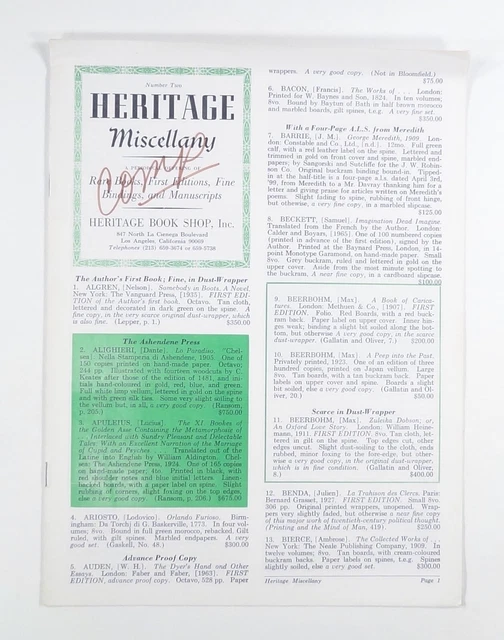 Number Two
HERITAGE
Miscellany
Rare Books, First Editions, Fine
Bindings, and Manuscripts
HERITAGE BOOK SHOP, Inc.
847 North La Cienega Boulevard
Los Angeles, California 90069
Telephone (213)
The Author's First Book; Fine, in Dust-Wrapper
1. ALGREN, [Nelson]. Somebody in Boots. A Novel.
New York: The Vanguard Press, [1935]. FIRST EDI-
TION of the Author's first book. Octavo. Tan cloth,
lettered and decorated in dark green on the spine. A
fine copy, in the very scarce original dust-wrapper, which
is also fine. (Lepper, p. 1.) $350.00
The Ashendene Press
2. ALIGHIERI, [Dante]. Lo Paradiso. Chel-
sea]. Nella Stamperia di Ashendene, 1905. One of
150 copies printed on hand-made paper. Octavo;
244 pp. Illustrated with fourteen woodcuts by C.
Keates after those of the edition of 1491, and in-
itials hand-colored in gold, red, blue, and green.
Full original limp vellum, lettered in gold on the spine
and with green silk ties. Some very slight soiling to
the vellum but, as all, a very good copy. (Ransom,
p. 205.) $750.00
3. APULEIUS, [Lucius]. The XI Bookes of
the Golden Asse Containing the Metamorphosie of
Interlaced with Sundry Pleasant and Delectable
Tales With an Excellent Narration of the Marriage
of Cupid and Psyches Translated out of the
Latin into English by William Adlington. Chel-
sea: The Ashendene Press, 1924. One of 165 copies
on hand-made paper; 4to. Printed in black, with
red shoulder notes and blue initial letters. Linen-
backed boards, with a paper label on spine. Slight
rubbing of corners, slight foxing on the top edges,
else a very good copy. (Ransom, p. 206.) $675.00
4. ARIOSTO, [Lodovico]. Orlando Furioso. Birm-
ingham: Da Torchj di G. Baskerville, 1773. In four vol-
umes; 8vo. Bound in full green morocco, rebacked. Gilt
ruled, with gilt spines. Marbled endpapers. A very
good set. (Gaskell, No. 48.) $300.00
Advance Proof Copy
5. AUDEN, [W. H.]. The Dyer's Hand and Other
Essays. London: Faber and Faber, [1963]. FIRST
EDITION, advance proof copy. Octavo, 528 pp. Paper
wrappers. A very good copy. (Not in Bloomfield.)
$75.00
6. BACON, [Francis]. The Works of . . . London:
Printed for W. Baynes and Son, 1824. In ten volumes;
8vo. Bound by Bayntun of Bath in half brown morocco
and marbled boards, gilt spines, t.e.g. A very fine set.
$350.00
With a Four-Page A.L.S. from Meredith
7. BARRIE, [J. M.]. George Meredith, 1909. Lon-
don: Constable and Co., Ltd., [n.d.]. 12mo. Full green
calf, with a red leather label on the spine. Lettered and
trimmed in gold on front cover and spine, marbled end-
papers; by Sangorski and Sutcliffe for the J. W. Robin-
son Co. Original buckram binding bound-in. Tipped-
in at the half-title is a four-page a.l.s. dated April 3rd,
'99, from Meredith to a Mr. Davray thanking him for a
letter and giving praise for articles written on Meredith's
poems. Slight fading to spine, rubbing of front hinge,
but otherwise, a very fine copy, in a marbled slipcase.
$125.00
8. BECKETT, [Samuel]. Imagination Dead Imagine.
Translated from the French by the Author. London:
Calder and Boyars, [1965]. One of 100 numbered copies
(printed in advance of the first edition), signed by the
Author. Printed at the Baynard Press, London, in 14-
point Monotype Garamond, on hand-made paper. Small
8vo. Grey buckram, ruled and lettered in gold on the
upper cover. Aside from the most minute spotting to
the buckram, A near fine copy, in a cardboard slipcase.
$100.00
9. BEERBOHM, [Max]. A Book of Carica-
tures. London: Methuen & Co., [1907]. FIRST
EDITION. Folio. Red Boards, with a red buck-
ram back. Paper label on upper cover. Inner hin-
ges weak; binding a slight bit soiled along the bot-
tom, but otherwise a very good copy, in the scarce
dust-wrapper. (Gallatin and Oliver, 7.) $200.00
10. BEERBOHM, [Max]. A Peep into the Past.
Privately printed, 1923. One of an edition of three
hundred copies, printed on Japan vellum. Large
8vo. Tan boards, with a tan buckram back. Paper
labels on upper cover and spine. Boards a slight
bit soiled, else a very good copy. (Gallatin and Ol-
iver, 20.) $50.00
Scarce in Dust-Wrapper
11. BEERBOHM, [Max]. Zuleika Dobson; or,
An Oxford Love Story. London: William Heine-
mann, 1911. FIRST EDITION. 8vo. Tan cloth, let-
tered in gilt on the spine. Top edges cut, other
edges uncut. Slight dust-soiling to the cloth, ends
rubbed, minor foxing to the fore-edge, but other-
wise a very good copy, in the original dust-wrapper,
which is in fine condition. (Gallatin and Oliver,
8.) $400.00
12. BENDA, [Julien]. La Trahison des Clercs. Paris:
Bernard Grasset, 1927. FIRST EDITION. Small 8vo.
306 pp. Original printed wrappers, unopened. Wrap-
pers very slightly faded, but otherwise a near fine copy
of this major work of twentieth-century political thought.
(Printing and the Mind of Man, 419). $250.00
13. BIERCE, [Ambrose]. The Collected Works of . . .
New York: The Neale Publishing Company, 1909. In
twelve volumes; 8vo. Tan boards, with cream-coloured
buckram backs. Paper labels on spines, t.e.g. Spines
slightly soiled, else a very good set. $300.00
Heritage Miscellany Page 1